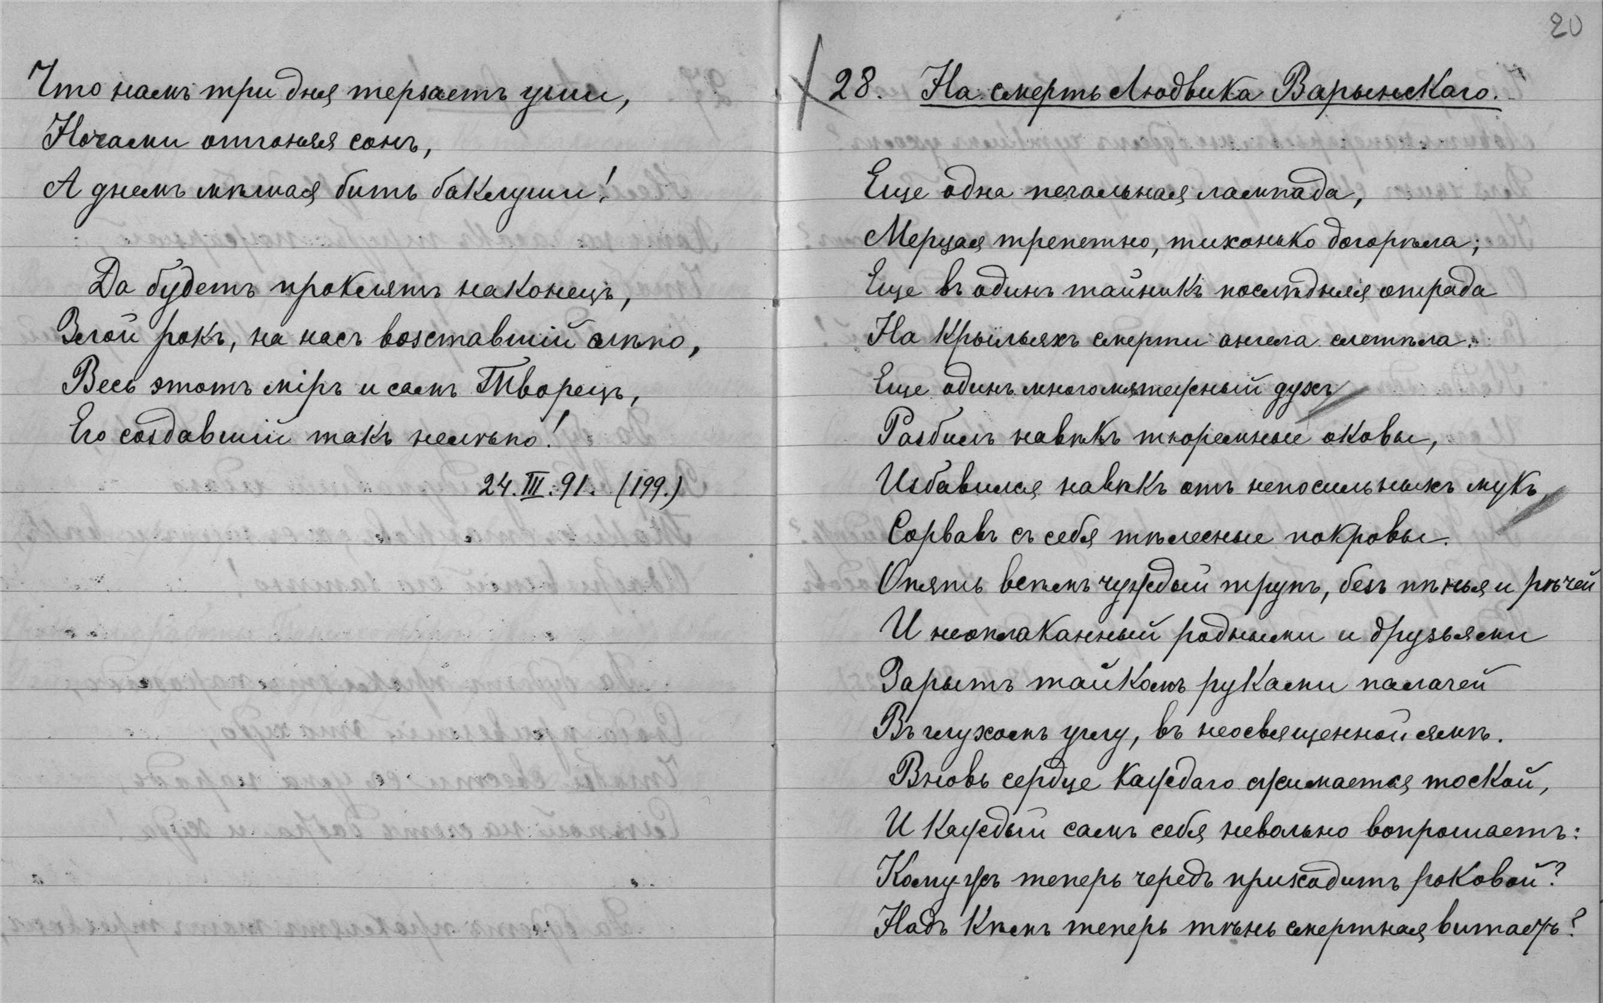 Что намъ три дня терзаетъ уши,
Ночами отгоняя сонъ,
А днемъ мѣшая бить баклуши!
Да будетъ проклятъ наконецъ,
Злой рокъ, на насъ возставшій слѣпо,
Весь этотъ міръ и самъ Творецъ,
Его создавшій такъ нелѣпо!
24.III.91. (199.)
20
28. На смерть Людвика Варынскаго.
Еще одна печальная лампада,
Мерцая трепетно, тихонько догорѣла;
Еще въ одинъ тайникъ послѣдняя отрада
На крыльяхъ смерти ангела слетѣла.
Еще одинъ многомятежный духъ
Разбилъ навѣкъ тюремные оковы,
Избавился навѣкъ отъ непосильныхъ мукъ,
Сорвавъ съ себя тѣлесные покровы.
Опять всѣмъ чуждый трупъ, безъ пѣнья и рѣчей
И неоплаканный родными и друзьями
Зарытъ тайкомъ руками палачей
Въ глухомъ углу, въ неосвященной ямѣ.
Вновь сердце каждаго сжимается тоской,
И каждый самъ себя невольно вопрошаетъ:
Кому жъ теперь чередъ приходитъ роковой?
Надъ кѣмъ теперь тѣнь смертная витаетъ?